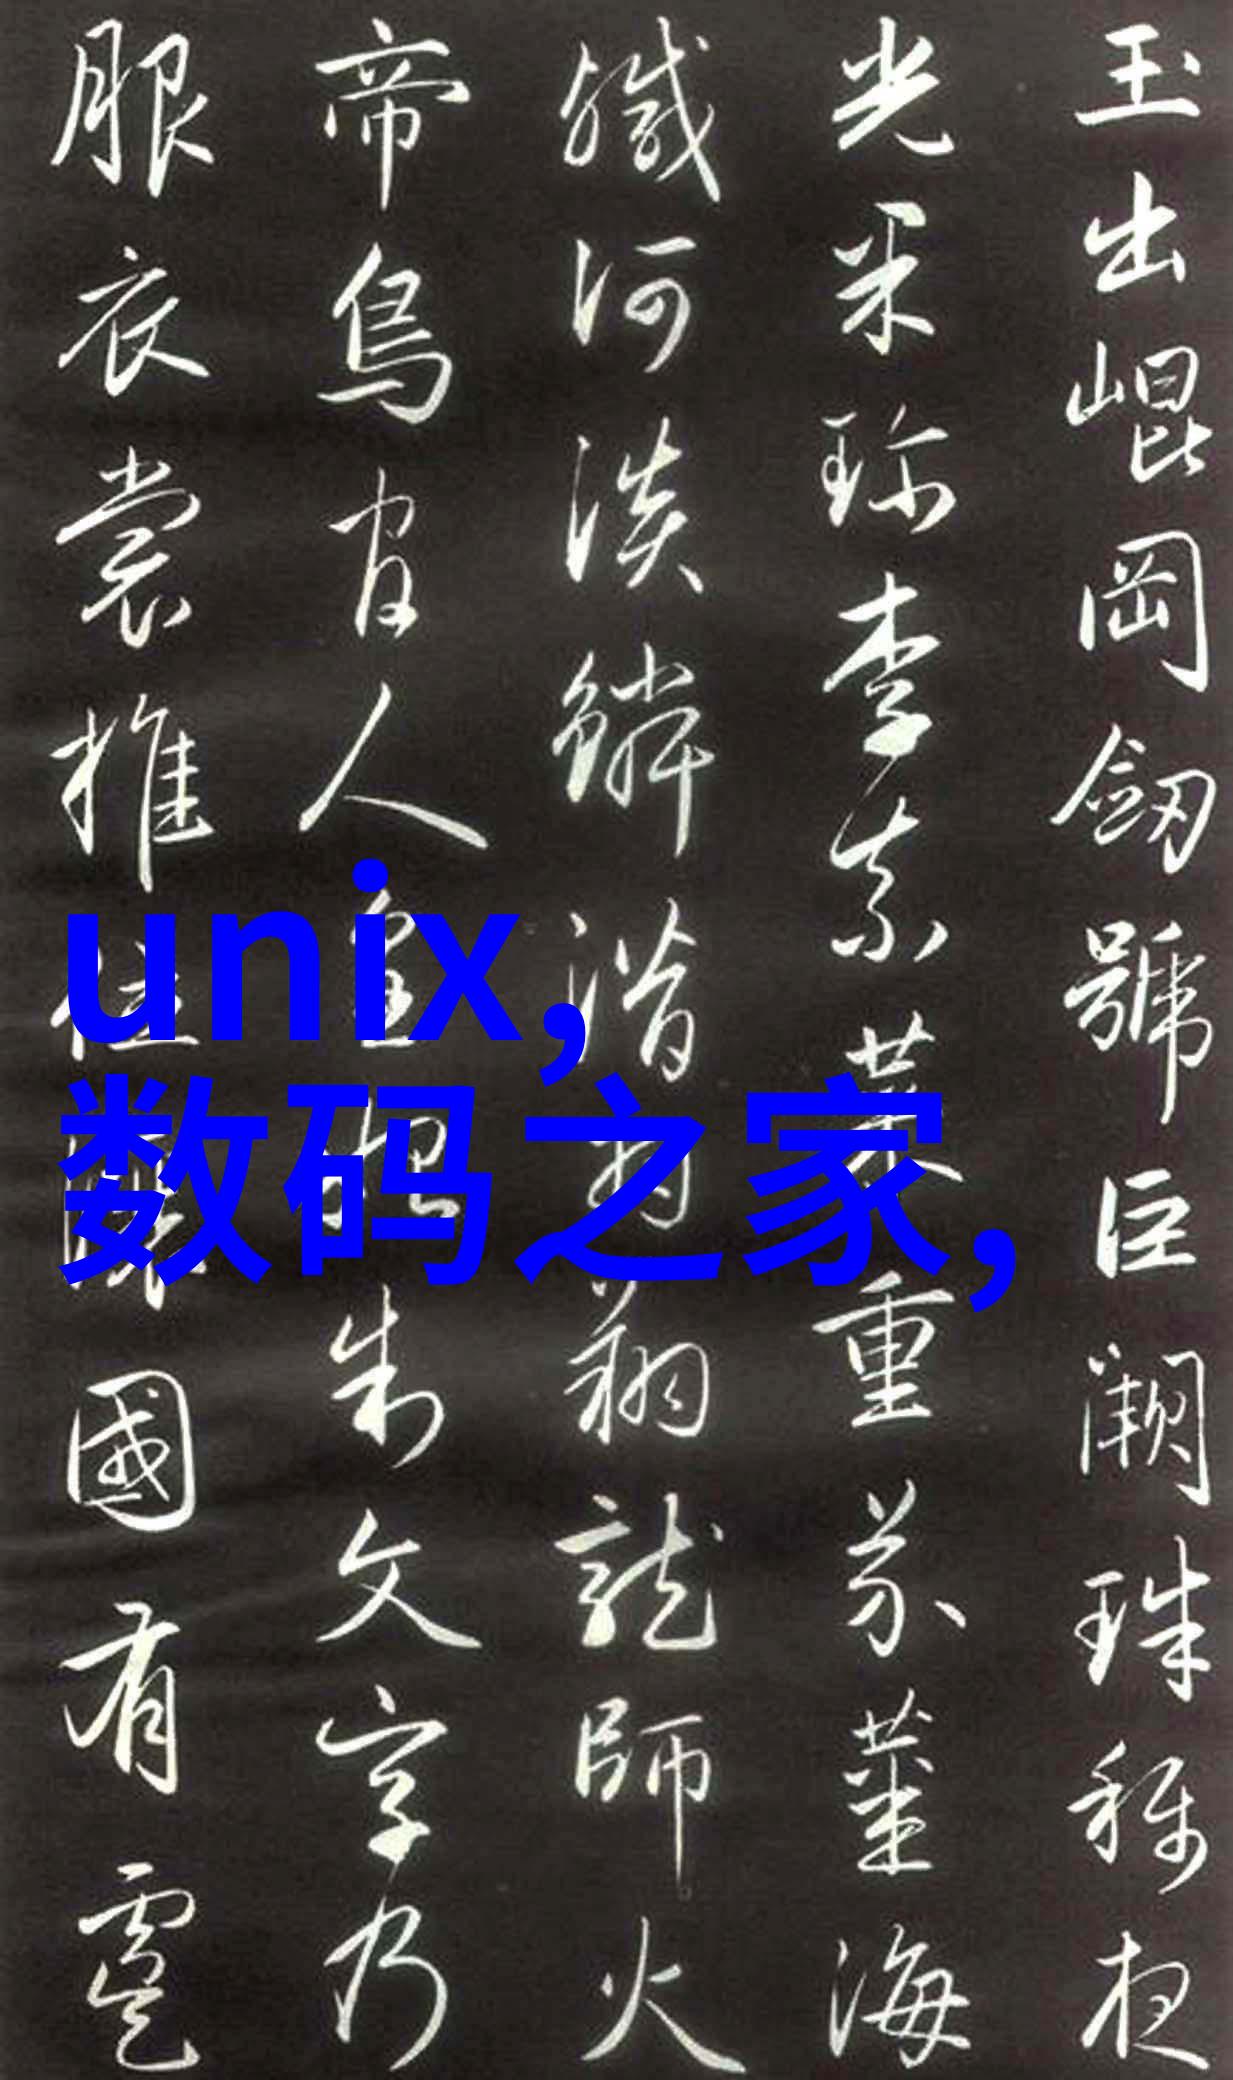 玉出崐岡劒號巨闕珠稱夜
光果珍李柰菜重芥薑海
鹹河淡鱗潛羽翔龍師火
帝鳥官人皇始制文字乃
服衣裳推位讓國有虞
unix,
数码之家,